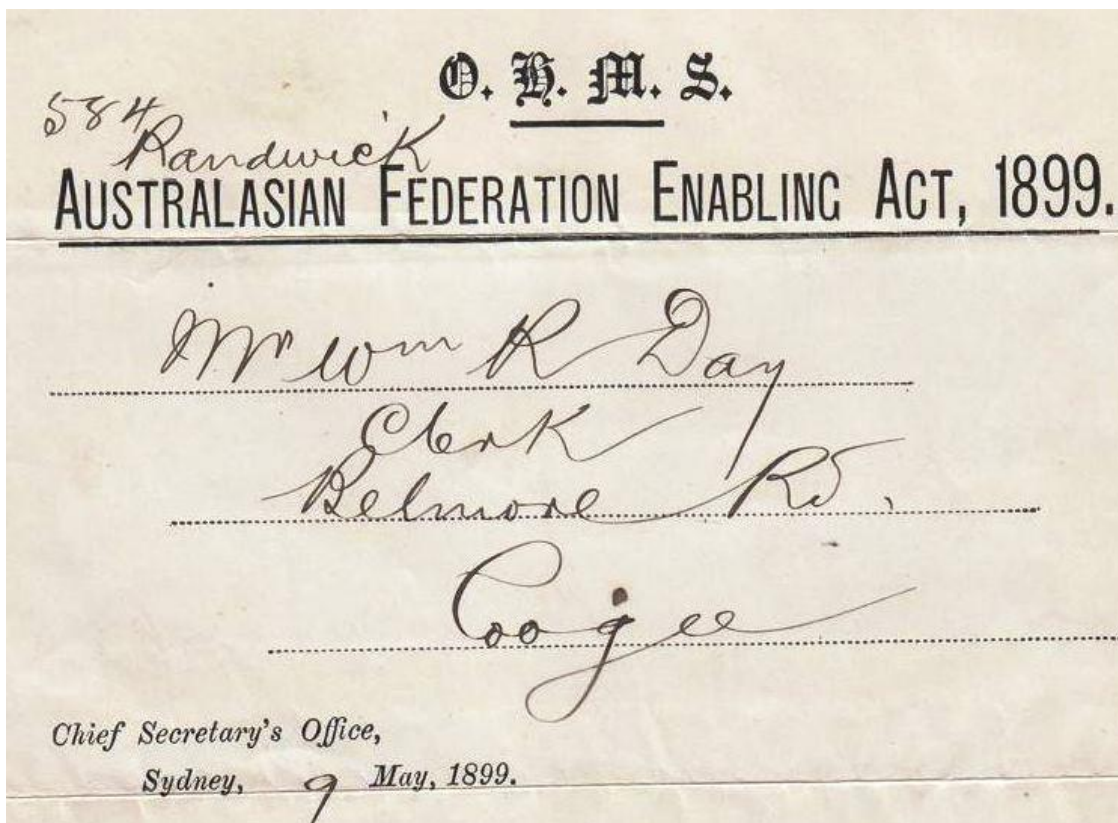 O. H. M. S.
584
Randwick
AUSTRALASIAN FEDERATION ENABLING ACT, 1899.
Mr Wm R Day
Clerk
Belmore Rd.
Coogee
Chief Secretary's Office,
Sydney, 9 May, 1899.